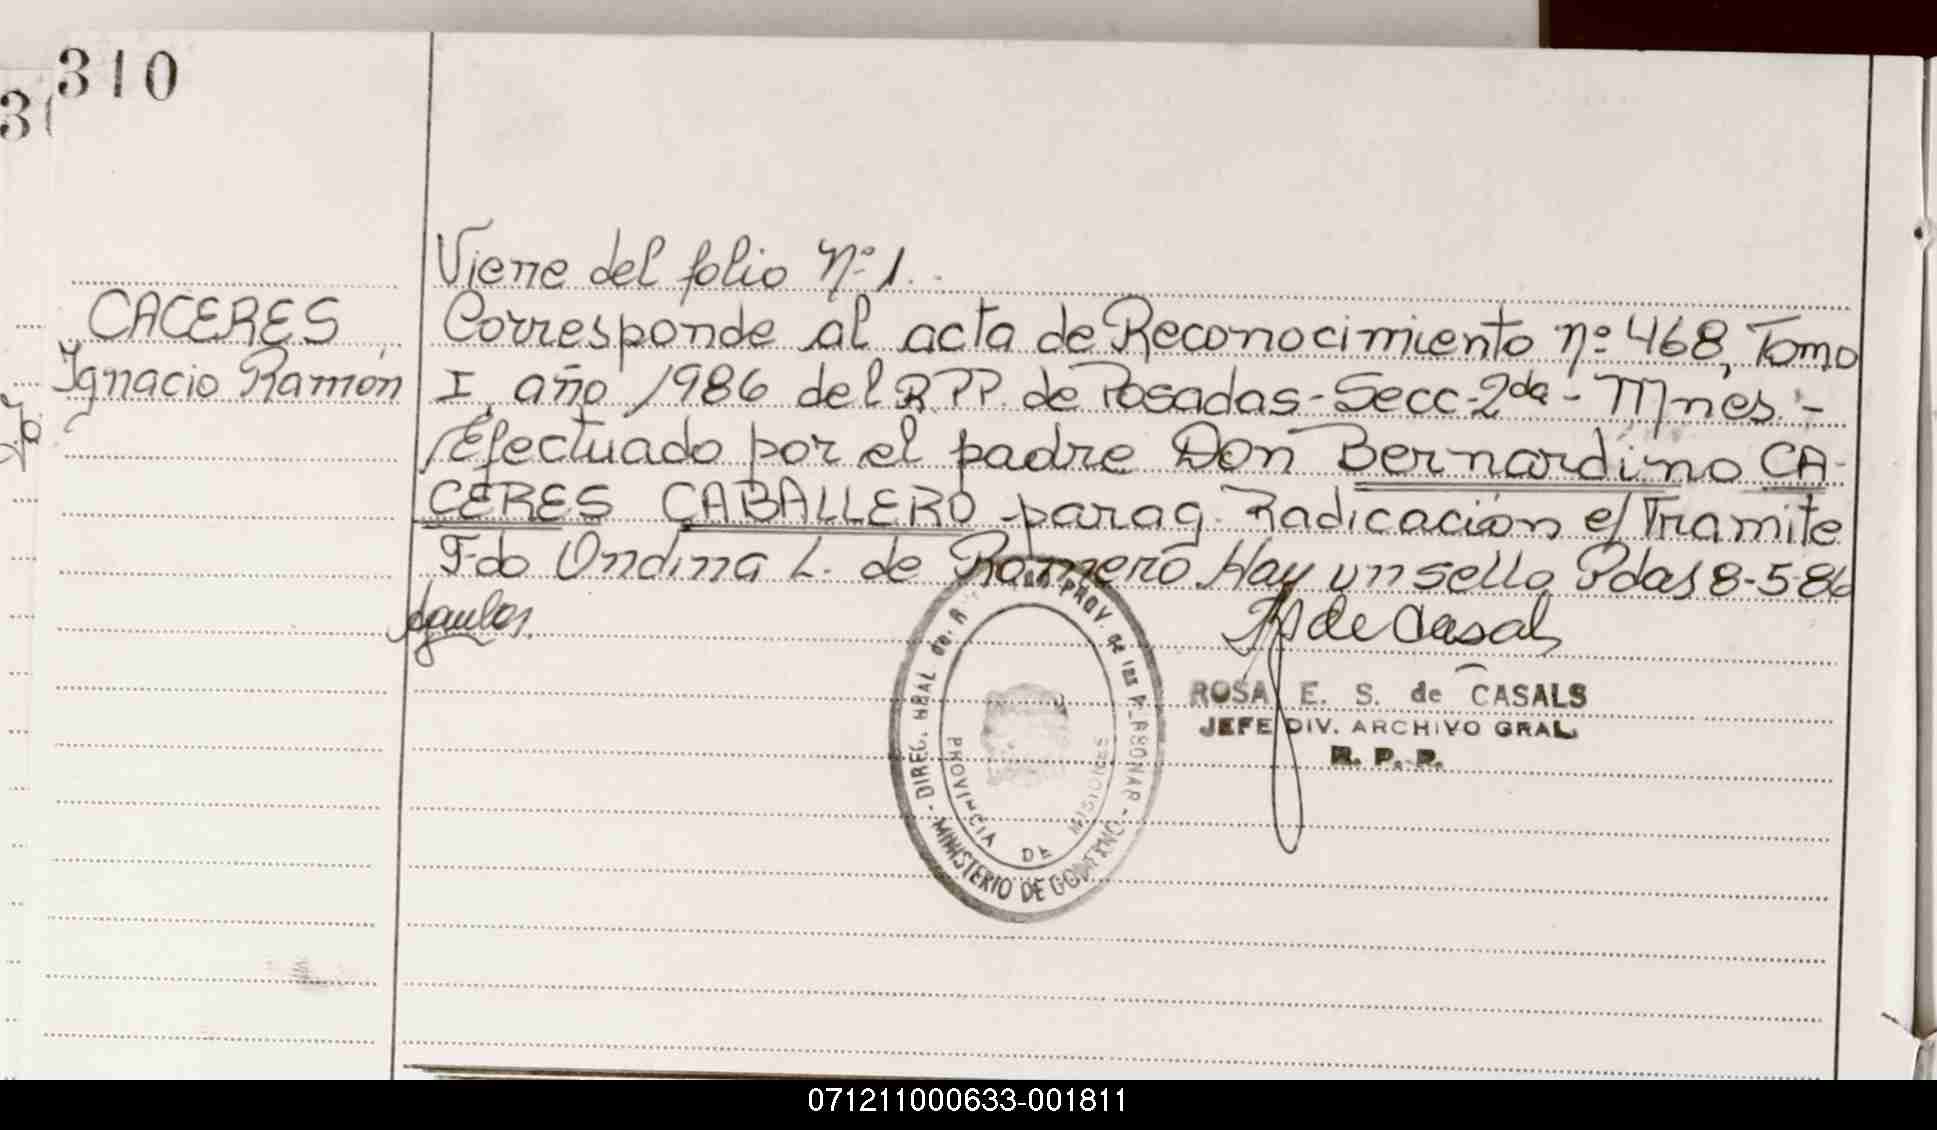 310
Viene del folio nº 1.
CACERES,
Ignacio Ramon
Corresponde al acta de Reconocimiento nº 468, Tomo
I, año 1986 del RPP. de Posadas-Secc-2da- Mnes.-
Efectuado por el padre Don Bernardino CA-
CERES CABALLERO parag. Radicación e/Tramite
Fdo Ondina L. de Romero Hay un sello Pdas 8-5-86
de Casals
ROSA E. S. de CASALS
JEFE DIV. ARCHIVO GRAL.
R. P. P.
DIREC. GRAL de
PROV. de las PERSONAS
MINISTERIO DE GOBIERNO
PROVINCIA DE MISIONES
071211000633-001811